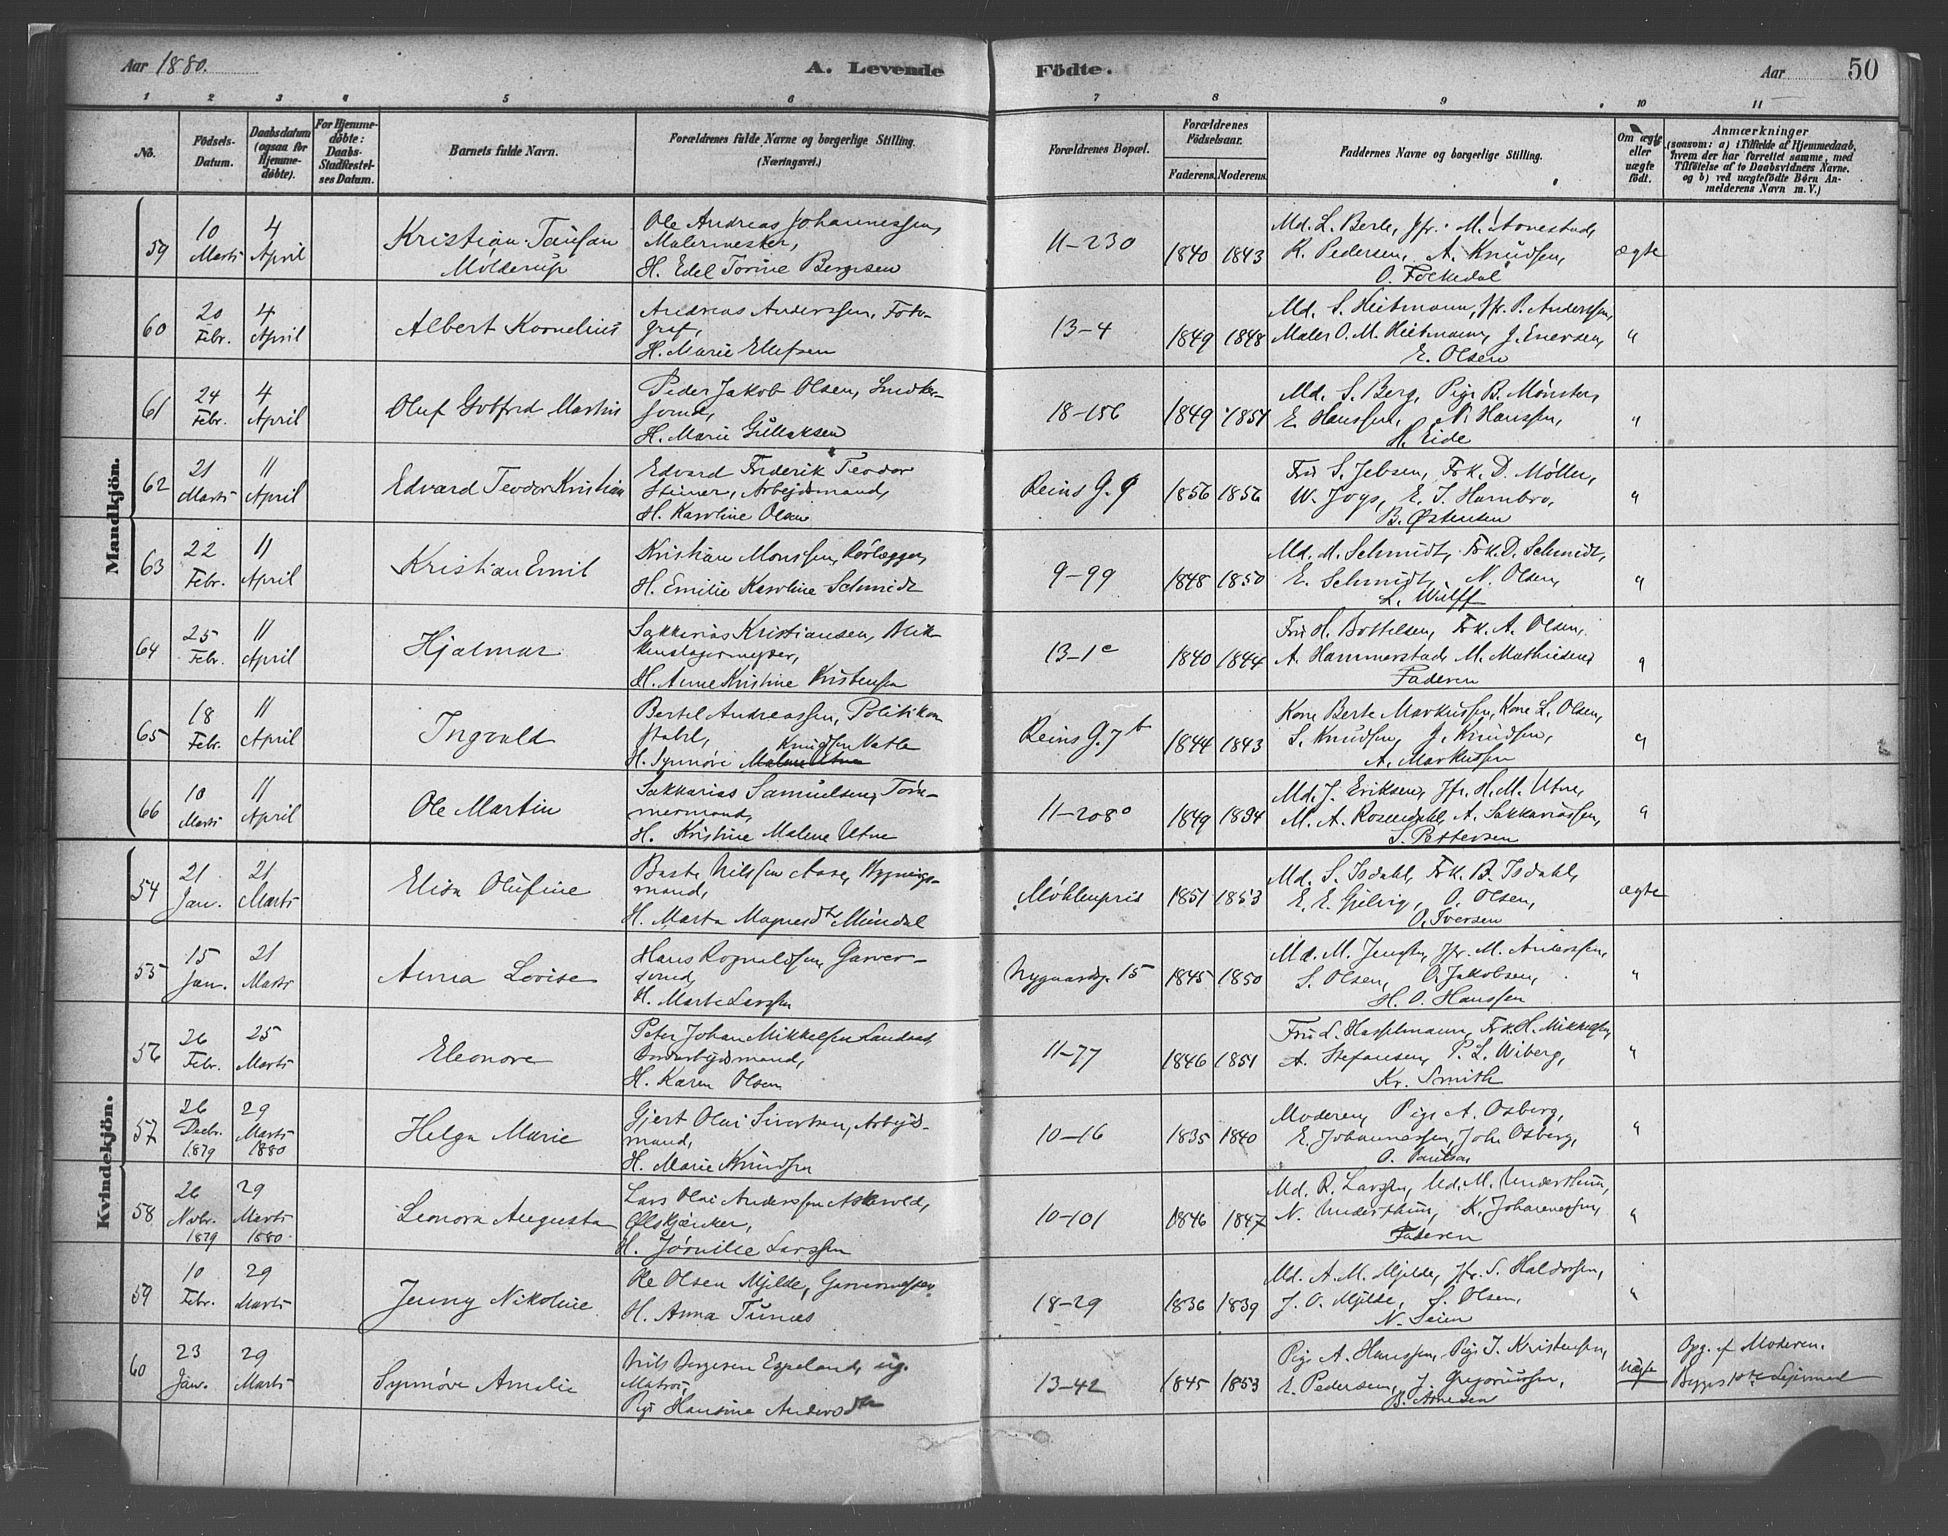 Aar 1880.
A. Levende Födte.
Aar
50
1 2 3 4 5 6 7 8 9 10 11
No.
Födsels-
Datum.
Daabsdatum
(ogsaa for
Hjemme-
døbte).
For Hjemme-
døbte:
Daabs-
Stadfæstel-
ses Datum.
Barnets fulde Navn.
Forældrenes fulde Navne og borgerlige Stilling.
(Næringsvei.)
Forældrenes Bopæl.
Forældrenes
Födselsaar.
Faderens. Moderens.
Faddernes Navne og borgerlige Stilling.
Om ægte
eller
uægte
födt.
Anmærkninger
(saasom: a) i Tilfælde af Hjemmedaab,
hvem der har forrettet samme, med
Tilföielse af to Daabsvidners Navne,
og b) ved uægtefödte Børn An-
melderens Navn m. V.)
Mandkjön.
59
10 Marts
4 April
Kristian Tausan
Molderup
Ole Andreas Johannessen,
Malermester,
H. Edel Torine Bergesen
11-230
1840 1843
Md. L. Berle, Jfr. M.
R. Pedersen, A. Knudsen,
O. Folkedal
ægte
60
20 Febr.
4 April
Albert Kornelius
Andreas Anderssen, Foto-
graf,
H. Marie Ellefsen
13-4
1849 1848
Md. S. Heitmann, Jfr. P. Anderssen,
Maler O. M. Heitmann, J. Enersen,
E. Olsen
"
61
24 Febr.
4 April
Oluf Gotfred Martin
Peder Jakob Olsen, Snedker-
svend,
H. Marie Gullaksen
18-156
1849 1851
Md. S. Berg, Pige B. Mønster,
E. Hanssen, N. Hanssen,
Eide
"
62
21 Marts
11 April
Edvard Teodor Kristian
Edvard Frederik Teodor
Steiner, Arbejdsmand,
H. Karoline Olsen
Reins G. 9
1856 1856
Fru S. Jebsen, Frk. D. Møller,
W. Joys, E. T. Hambro,
B. Østensen
"
63
22 Febr.
11 April
Kristian Emil
Kristian Monssen, Rørlægger,
H. Emilie Karoline Schmidt
9-99
1848 1850
Md. M. Schmidt, Frk. D. Schmidt,
E. Schmidt, N. Olsen,
L. Wulff
"
64
25 Febr.
11 April
Hjalmar
Sakkarias Kristiansen, Blik-
kenslagermester,
H. Anne Kristine Kristensen
13-1c
1840 1844
Fru H. Bottelsen, Frk. A. Olsen,
A. Hammerstad, M. Mathiesen,
Faderen
"
65
18 Febr.
11 April
Ingvald
Bertel Andreassen, Politikon-
stabel,
Knudsen Natle
H. Synnøve Malene Utne
Reins G. 7b
1844 1843
Kone Berte Markussen, Kone L. Olsen,
S. Knudsen, J. Knudsen,
A. Markussen
"
66
10 Marts
11 April
Ole Martin
Sakkarias Samuelsen, Tøm-
mermand,
H. Kristine Malene Utne
11-208
1849 1834
Md. J. Eriksen, Jfr. H. M. Utne,
M. A. Rosendahl, A. Sakkariassen,
S. Pettersen
"
Kvindekjön.
54
21 Jan.
21 Marts
Elisa Olufine
Nilssen Aase,
mand,
H. Marta Magnesdtr Mundal
Møhlenpris
1851 1853
Md. S. Isdahl, Frk. B. Isdahl,
E. E. Gjelvig, O. Olsen,
O. Iversen
ægte
55
15 Jan.
21 Marts
Anna Lovise
Hans Rognaldsen, Garver-
svend,
H. Marte Larssen
Nygaardsg. 15
1845 1850
Md. M. Jensen, Jfr. M. Anderssen,
S. Olsen, O. Jakobsen,
H. O. Hanssen
"
56
26 Febr.
25 Marts
Eleonore
Peter Johan Mikkelsen Landaas,
Ordarbejdsmand,
H. Karen Olsen
11-77
1846 1851
Fru L. Hasselmann, Frk. H. Mikkelsen,
A. Stefansen, P. L. Wiberg,
Kr. Smith
"
57
26 Decbr. 1879
29 Marts 1880
Helga Marie
Gjert Olai Sivertsen, Arbejds-
mand,
H. Marie Knudsen
10-16
1835 1840
Moderen, Pige A. Osberg,
E. Johannessen, Joh. Osberg,
O. Paulsen
"
58
26 Novbr. 1879
29 Marts 1880
Leonora Augusta
Lars Olai Anderssen Askevold,
Ølskjænker,
H. Jørnilie Larssen
10-101
1846 1847
Md. R. Larssen, Md. M. Understhun,
N. Understhun, K. Johannessen,
Faderen
"
59
10 Febr.
29 Marts
Jenny Nikoline
Ole Olsen Mjelde, Garversvend,
H. Anna Tunes
18-29
1836 1839
Md. A. M. Mjelde, Jfr. S. Haldorsen,
J. O. Mjelde, S. Olsen,
N. Seien
"
60
23 Jan.
29 Marts
Synnøve Amalie
Nils Bergesen Espeland, ug.
Matros,
Pige Hansine Andersdtr
13-42
1845 1853
Pige A. Hanssen, Pige T. Kristensen,
E. Pedersen, J. Gregoriussen,
B. Arnesen
Uægte
Opg. af Moderen.
Begges 1ste Lejermaal